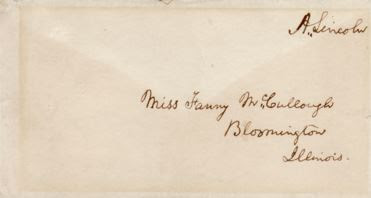 A. Lincoln
Miss Fanny McCullough
Bloomington
Illinois.